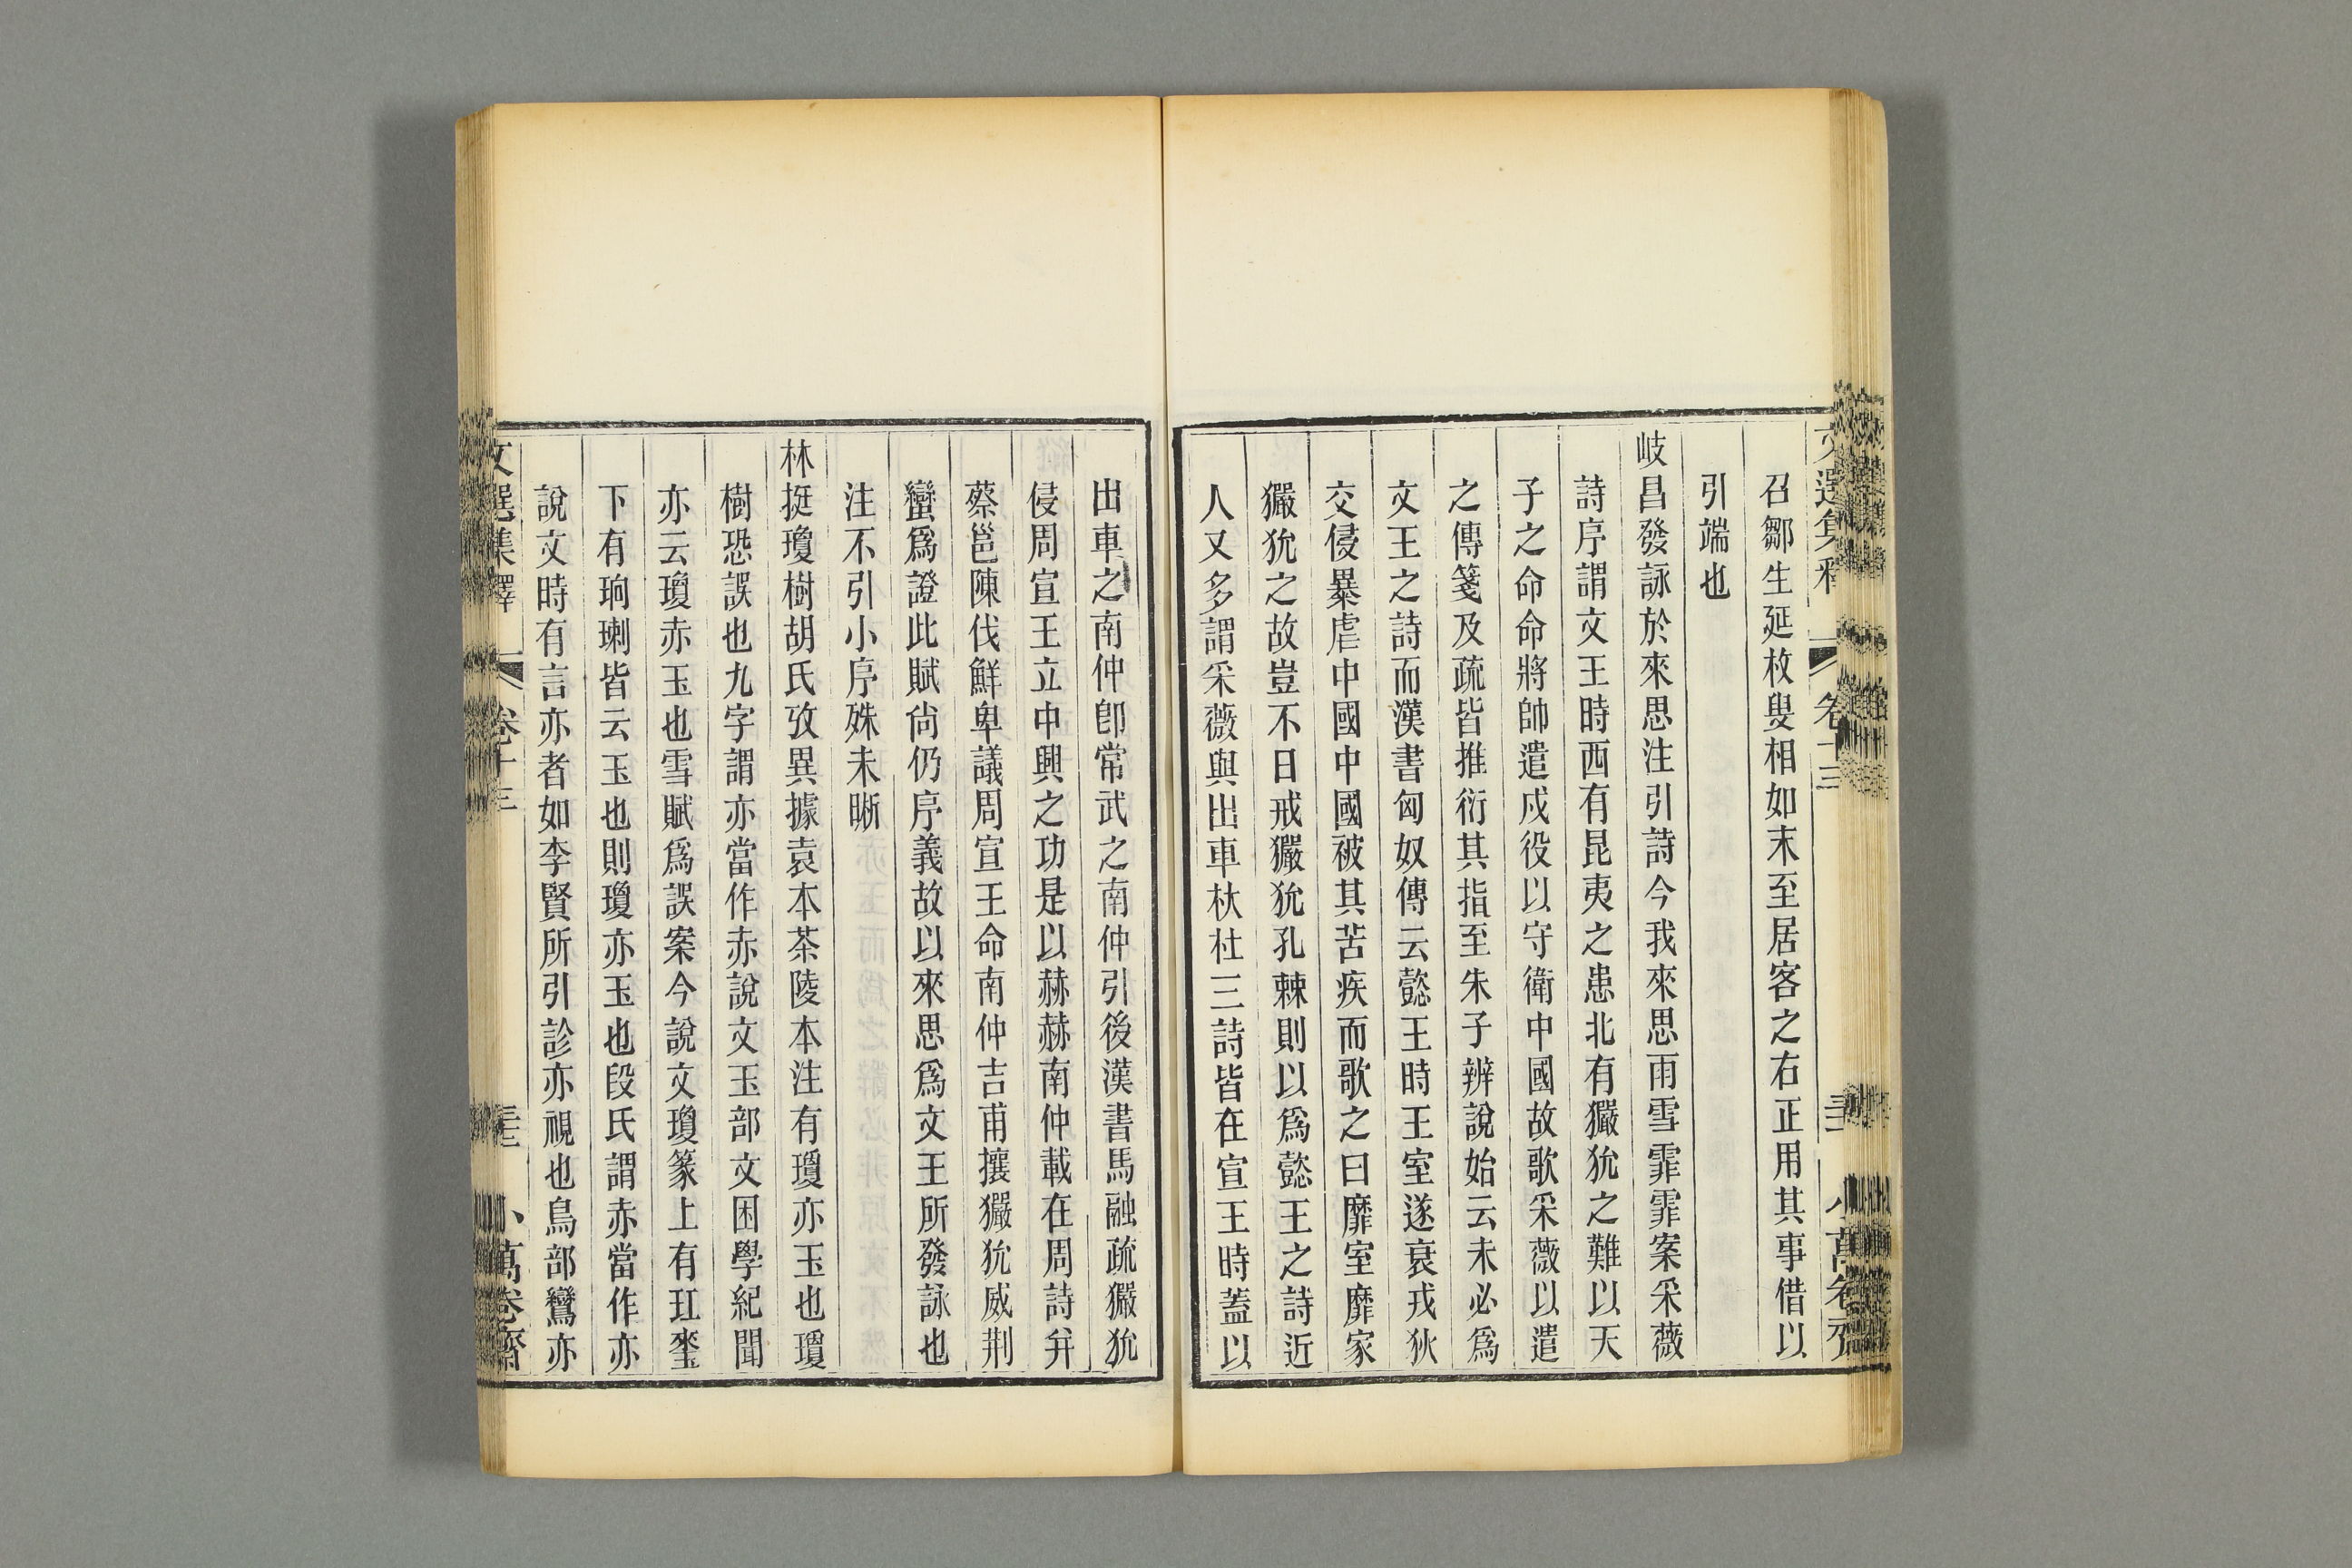 文選集釋 卷十三 小萬卷齋
召鄒生延枚叟相如末至居客之右正用其事借以
引端也
岐昌發詠於來思注引詩今我來思雨雪霏霏案采薇
詩序謂文王時西有昆夷之患北有玁狁之難以天
子之命命將帥遣戍役以守衛中國故歌采薇以遣
之傳箋及疏皆推衍其指至朱子辨說始云未必為
文王之詩而漢書匈奴傳云懿王時王室遂衰戎狄
交侵暴虐中國中國被其苦疾而歌之曰靡室靡家
玁狁之故豈不日戒玁狁孔棘則以為懿王之詩近
人又多謂采薇與出車杕杜三詩皆在宣王時蓋以
出車之南仲卽常武之南仲引後漢書馬融疏玁狁
侵周宣王立中興之功是以赫赫南仲載在周詩幷
蔡邕陳伐鮮卑議周宣王命南仲吉甫攘玁狁威荆
蠻爲證此賦尙仍序義故以來思爲文王所發詠也
注不引小序殊未晣
林挺瓊樹胡氏攷異據袁本茶陵本注有瓊亦玉也瓊
樹恐誤也九字謂亦當作赤說文玉部文困學紀聞
亦云瓊赤玉也雪賦爲誤案今說文瓊篆上有玒㻗
下有珦瑓皆云玉也則瓊亦玉也段氏謂赤當作亦
說文時有言亦者如李賢所引診亦視也鳥部鸞亦
文選集釋 卷十三 小萬卷齋